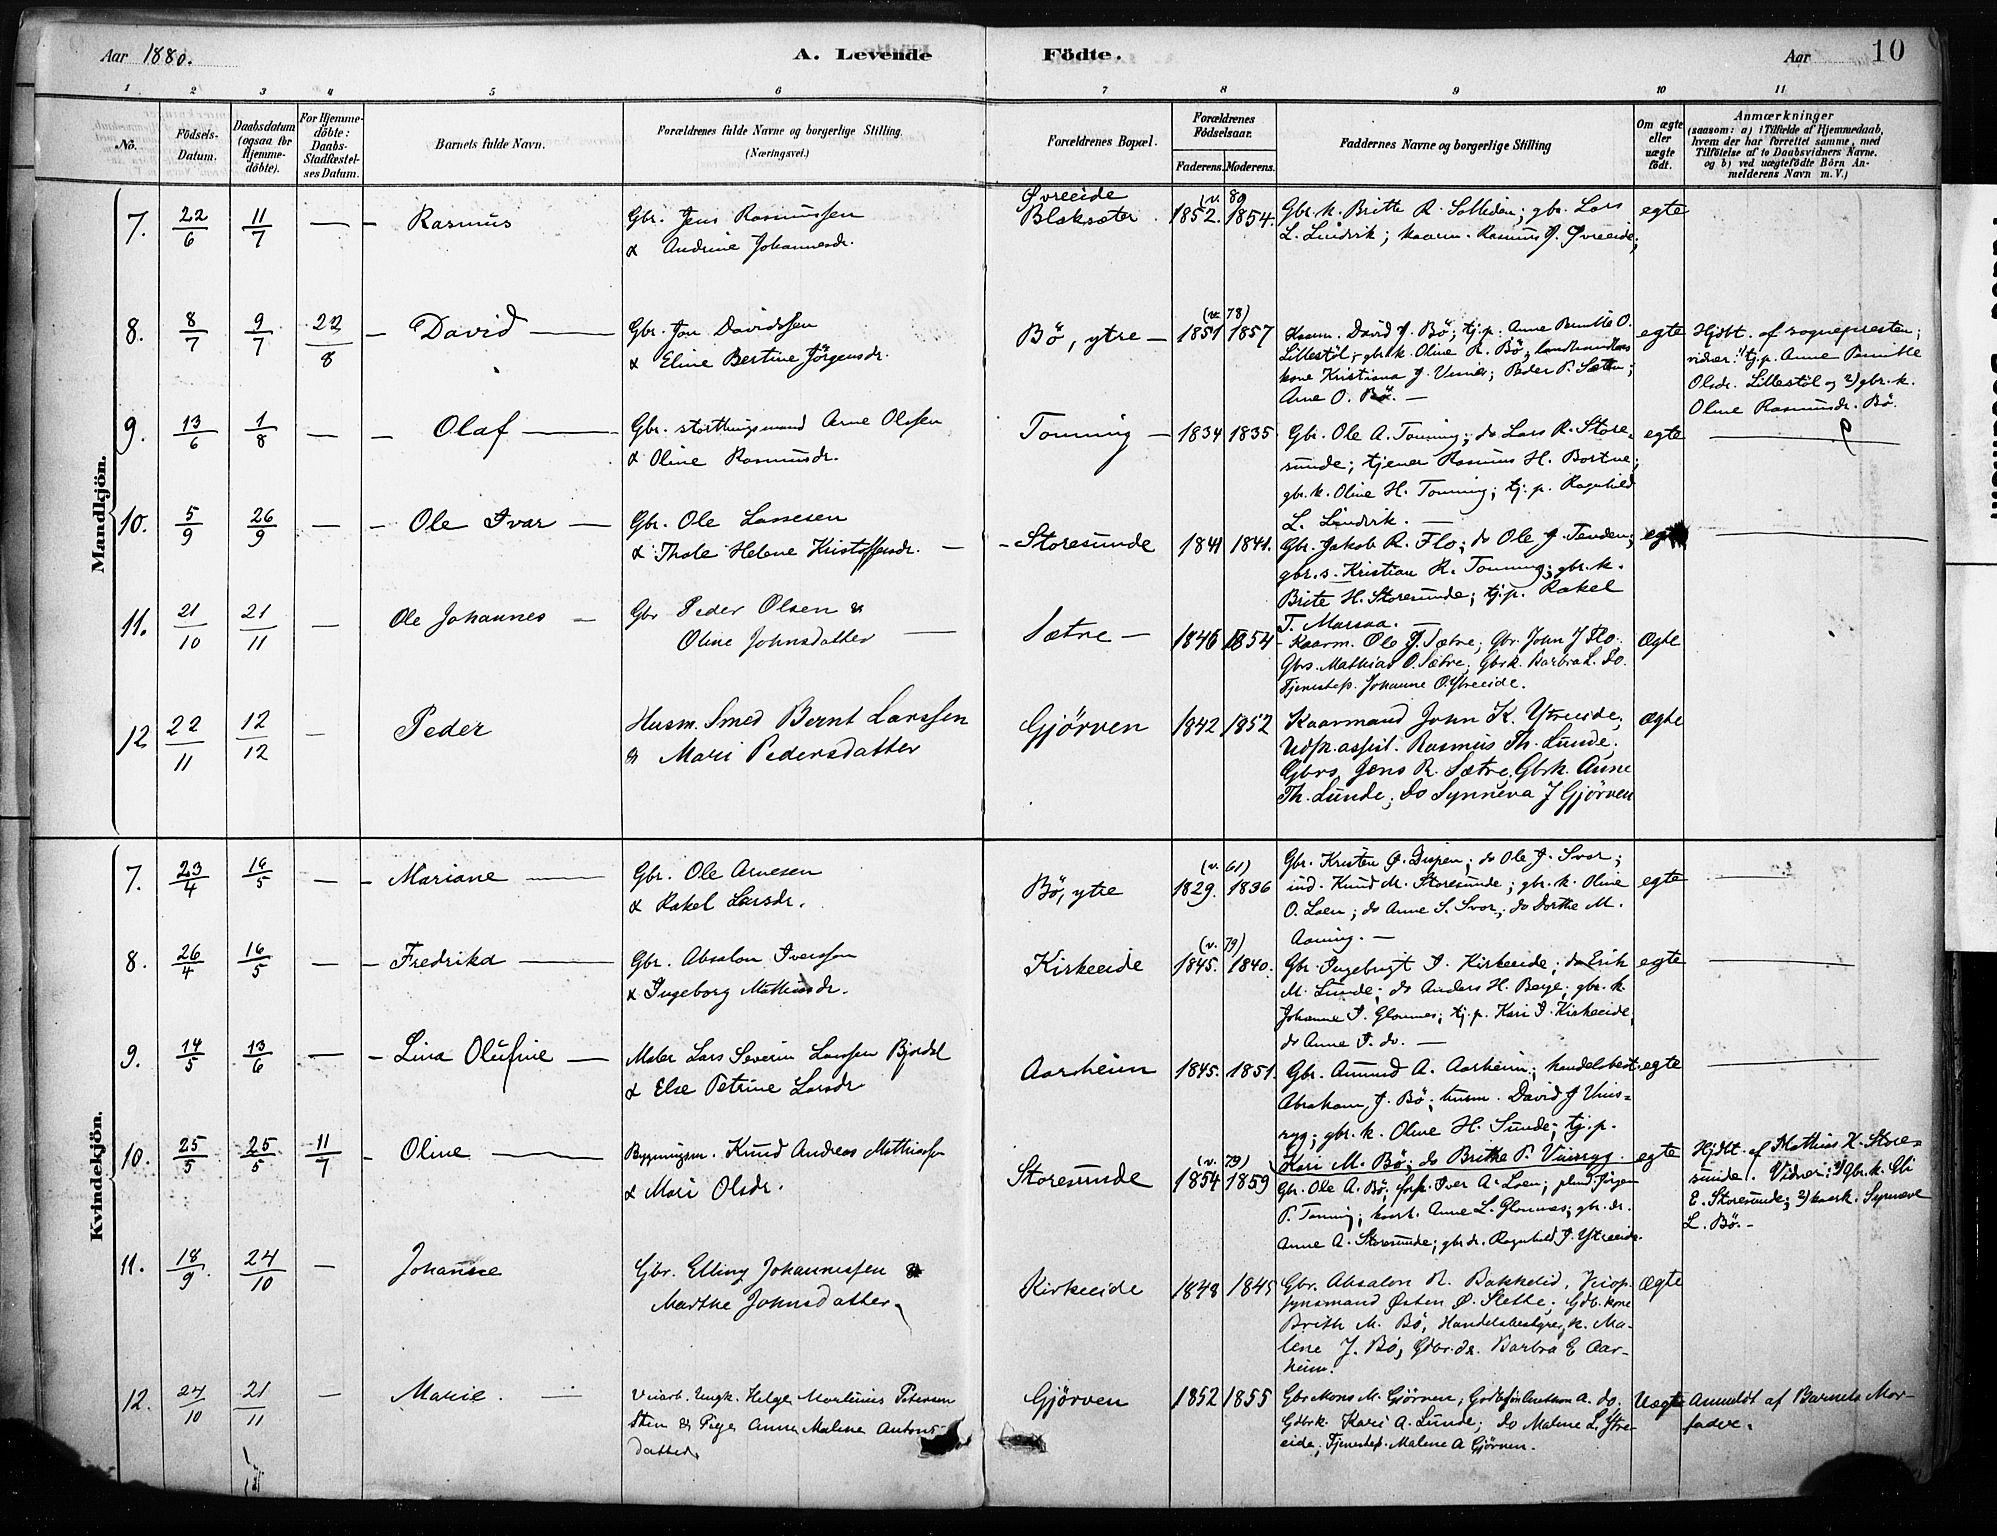 Aar 1880. A. Levende Födte. Aar 10
1 2 3 4 5 6 7 8 9 10 11
No. Födsels-Datum. Daabsdatum (ogsaa for Hjemmedöbte). For Hjemmedöbte: Daabs-Stadfæstelses Datum. Barnets fulde Navn. Forældrenes fulde Navne og borgerlige Stilling. (Næringsvei.) Forældrenes Bopæl. Forældrenes Födselsaar. Faderens. Moderens. Faddernes Navne og borgerlige Stilling Om ægte eller uægte födt. Anmærkninger (saasom: a) i Tilfælde af Hjemmedaab, hvem der har forrettet samme, med Tilföielse af to Daabsvidners Navne. og b) ved uægtefödte Börn Anmelderens Navn m. V.)
Mandkjön.
7. 22/6 11/7 — Rasmus
Gbr. Jens Rasmussen
& Andrine Johannesdr.
Øvreeide
Blaksæter. (v. 80) 1852. 1854.
Gbr. k. Britte R. Solheim; gbr. Lars
L. Lindvik; kaarm. Rasmus J. Øvreeide;
egte
8. 8/7 9/7 22/8 — David —
Gbr. Jon Davidssen
& Eline Bertine Jörgensdr.
Bö, ytre — (v. 78) 1851 1857
Kaarm. David J. Bö; tj.p. Anne Pernille O.
Lillestöl; gbr.k. Oline R. Bö; landhandlers
kone Kristiana J. Visnes; Peder P. Sætre;
Arne O. Bö. —
egte
Hjdbt. af sognepresten;
vidner: 1) tj.p. Anne Pernille
Olsdr. Lillestöl og 2) gbr. k.
Oline Rasmusdr. Bö.
9. 13/6 1/8 — — Olaf —
Gbr. storthingsmand Arne Olssen
& Oline Rasmusdr.
Tonning — 1834 1835
Gbr. Ole A. Tonning; do Lars R. Store-
sunde; tjener Rasmus H. Bortne;
gbr. k. Oline H. Tonning; tj. p. Ragnhild
L. Lindvik. —
egte
10. 5/9 26/9 — — Ole Ivar —
Gbr. Ole Larsen
& Thale Helene Kristoffersdr. —
Storesunde 1841 1841.
Gbr. Jakob R. Flo; do Ole J. Tenden;
gbr. s. Kristian R. Tonning; gbr. k.
Brite H. Storesunde; tj.p. Rakel
T. Marsaa. —
egte
11. 21/10 21/11 — Ole Johannes —
Gbr Peder Olsen &
Oline Johnsdatter —
Sætre — 1846 1854
Kaarm. Ole J. Sætre; Gbr. John J Flo.
Gbrs. Mathias O. Sætre; Gbrk. Barbra L. Do.
Tjenestep. Johanne O. Ytreeide.
Ægte
12 22/11 12/12 — Peder
Husm. Smed Bernt Larssen
& Mari Pedersdatter
Gjörven 1842 1852
Kaarmand John K. Ytreeide;
Udsk. assist. Rasmus Th. Lunde;
Gbrs, Jens R. Sætre, Gbrk. Anne
Th. Lunde; Do Synneva J Gjörven
Ægte
Kvindekjön.
7. 23/4 16/5 — — Mariane —
Gbr. Ole Arnesen
& Rakel Larsdr.
Bö, ytre (v. 61) 1829. 1836
Gbr. Kristen Ø. Dispen; do Ole J. Svor;
ind. Knud M. Storesunde; gbr. k. Oline
O. Loen; do Anne S. Svor; do Dorthe M.
Aaning. —
egte
8. 26/4 16/5 — — Fredrika —
Gbr. Absalon Iverssen
& Ingeborg Mathiasdr.
Kirkeeide (v. 79) 1845. 1840.
Gbr. Ingebrigt J. Kirkeeide; do Erik
M. Lunde; do Anders H. Berge; gbr. k.
Johanne J. Glomnes; tj. p. Kari I. Kirkeeide,
do Anne I. do. —
egte
9. 14/5 13/6 — — Lina Olufine —
Maler Lars Severin Larssen Bjordal
& Else Petrine Larsdr
Aarheim 1845. 1851.
Gbr. Amund A. Aarheim; handelsbest.
Abraham J. Bö; husm. David J Vins-
ryg; gbr. k. Oline H. Sunde; tj. p.
Kari M. Bö; do Brithe P. Vinsryg.
egte
10. 25/5 25/5 11/7 Oline —
Bygningsm. Knud Andreas Mathiassen
& Mari Olsdr.
Storesunde (v. 79) 1854 1859
Gbr. Ole A. Bö; forp. Iver A. Loen; Jörgen
P. Tonning; kaark. Anne L. Glomnes; gbr. dr.
Anne A. Storesunde; gbr dr. Ragnhild J. Ytreeide.
egte
Hjdbt. af Mathias K. Store-
sunde. Vidner: 1) Gbr. k. Eli
E. Storesunde; 2) kaark. Synneve
L. Bö. —
11. 18/9. 24/10 — Johanne
Gbr. Elling Johannessen &
Marthe Johnsdatter
Kirkeeide 1848 1845
Gbr. Absalon R. Bakkelid,
synsmand Østen Ø. Slethe; Gdb. kone
Brith M. Bö, Handelsbestyrer, k. Ma-
lene J. Bö, Gbr. dr. Barbra E Aar-
heim.
Ægte
12. 24/10 21/11 — Marie. —
Veiarb. Ungk. Helge Martinus Petersen
Sten & Pige Anna Malene Antons
datter
Gjörven 1852 1855
Gbr Mons M. Gjörven; Anthon A. do;
Gdbrk. Kari A. Lunde; Do Malene L. Ytre-
eide; Tjenestep. Malene A Gjörven.
Uægte
Anmeldt af Barnets Mor-
fader.